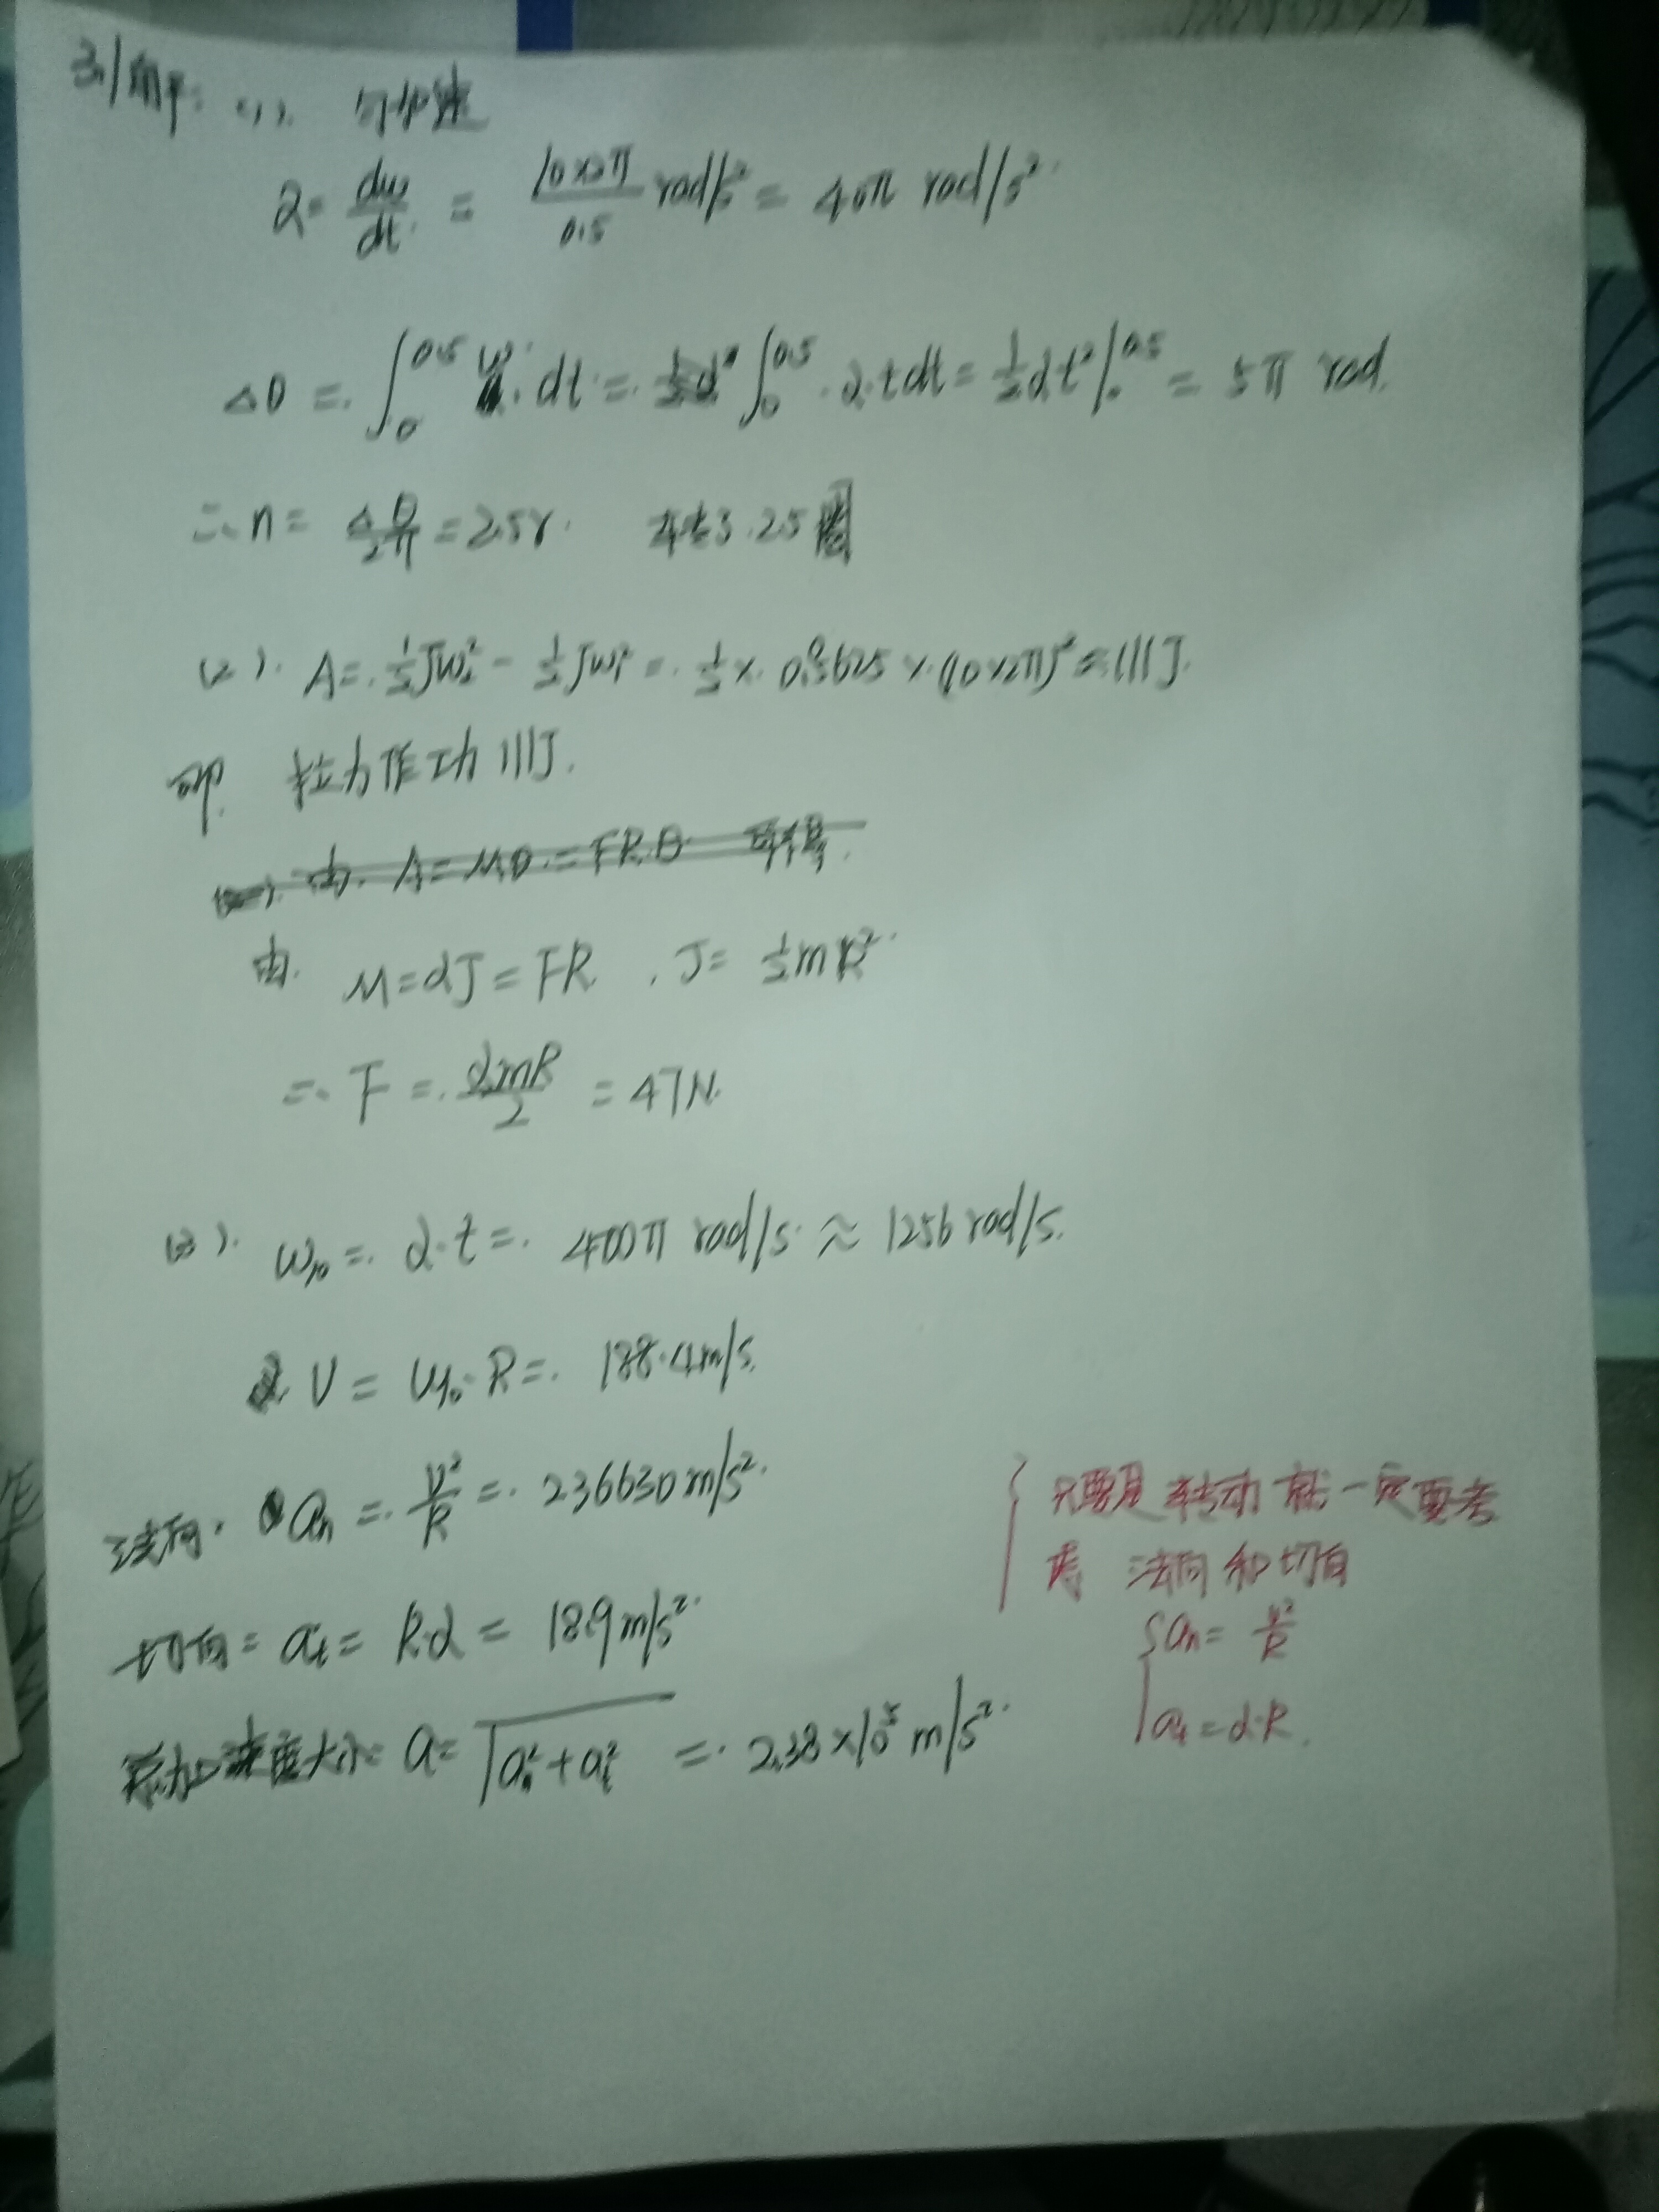 3、解: (1). 匀加速
α = dω/dt = 10×2π/0.5 rad/s² = 40π rad/s².
Δθ = ∫₀^0.5 ω·dt = ∫₀^0.5 α·t dt = ½αt²|₀^0.5 = 5π rad.
∴ n = Δθ/2π = 2.5r. 转了 2.5圈
(2). A = ½Jω₂² - ½Jω₁² = ½ × 0.05625 × (10×2π)² = 111J.
即. 拉力作功 111J.
由. A = Mθ = FRθ 可得.
由. M = αJ = FR , J = ½mR².
∴ F = αmR/2 = 47N.
(3). ω₁₀ = α·t = 400π rad/s ≈ 1256 rad/s.
V = ω₁₀·R = 188.4m/s.
法向. aₙ = v²/R = 236630 m/s².
切向: aₜ = R·α = 18.9 m/s².
加速度大小: a = √(aₙ²+aₜ²) = 2.38×10⁵ m/s².
只要是转动就一定要考
虑 法向和切向
{ aₙ = v²/R
aₜ = α·R.